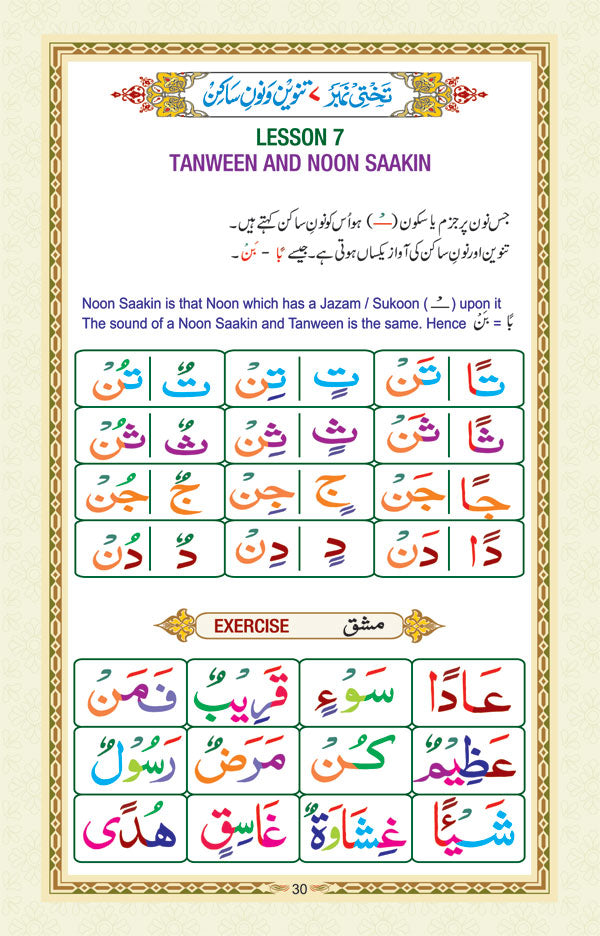 تختی نمبر ۷ تنوین و نون ساکن
LESSON 7
TANWEEN AND NOON SAAKIN
جس نون پر جزم یا سکون (ـْـ) ہو اُس کو نونِ ساکن کہتے ہیں۔
تنوین اور نونِ ساکن کی آواز یکساں ہوتی ہے۔ جیسے بًا - بَنْ۔
Noon Saakin is that Noon which has a Jazam / Sukoon (ـْـ) upon it
The sound of a Noon Saakin and Tanween is the same. Hence بَنْ = بًا
تًا تَنْ تٍ تِنْ تٌ تُنْ
ثًا ثَنْ ثٍ ثِنْ ثٌ ثُنْ
جًا جَنْ جٍ جِنْ جٌ جُنْ
دًا دَنْ دٍ دِنْ دٌ دُنْ
EXERCISE مشق
عَادًا سَوْءٍ قَرِيْبٌ فَمَنْ
عَظِيْمٌ كُنْ مَرَضٌ رَسُوْلٌ
شَيْـًٔا غِشَاوَةٌ غَاسِقٍ هُدًى
30